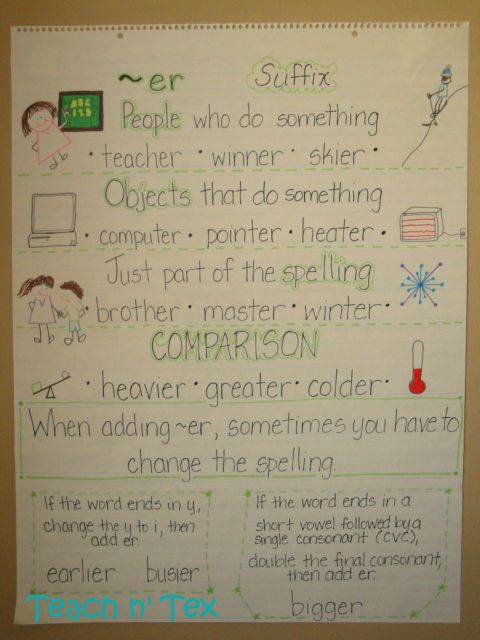 ~er Suffix
ABC
123
People who do something
• teacher • winner • skier •
Objects that do something
• computer • pointer • heater •
Just part of the spelling
• brother • master • winter •
COMPARISON
• heavier • greater • colder •
When adding ~er, sometimes you have to
change the spelling.
If the word ends in y,
change the y to i, then
add er.
earlier busier
If the word ends in a
short vowel followed by a
single consonant (CVC),
double the final consonant,
then add er.
bigger
Teach n' Tex